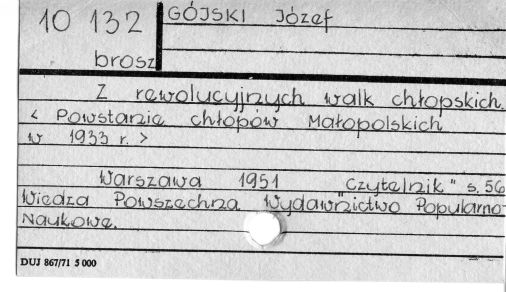 10 132
brosz
GÓJSKI Józef
Z rewolucyjnych walk chłopskich.
< Powstanie chłopów Małopolskich
w 1933 r. >
Warszawa 1951 "Czytelnik" s. 56
Wiedza Powszechna Wydawnictwo Popularno-
Naukowe.
DUJ 867/71 5 000